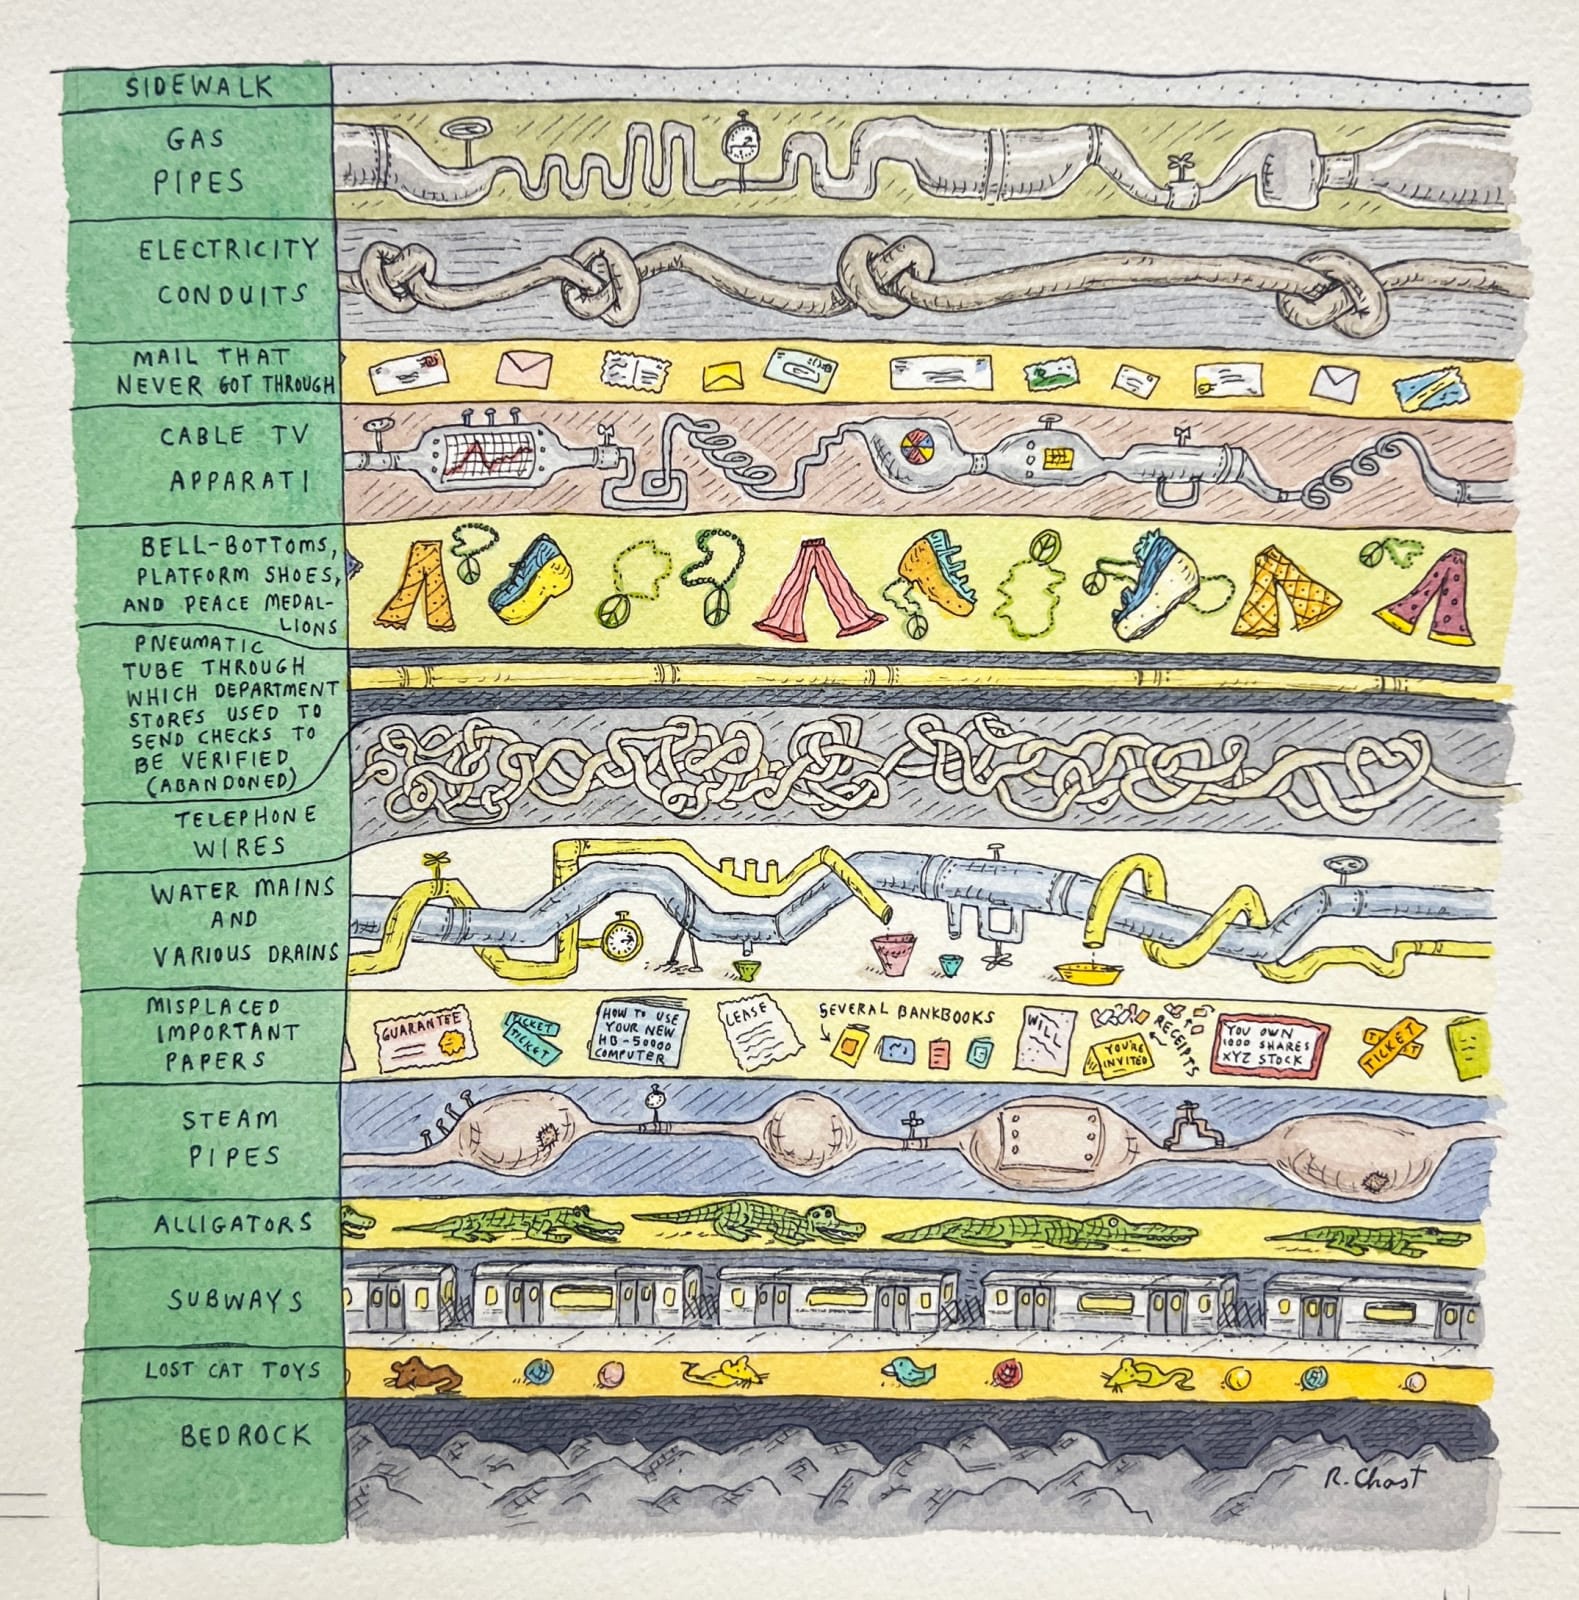 SIDEWALK
GAS
PIPES
ELECTRICITY
CONDUITS
MAIL THAT
NEVER GOT THROUGH
CABLE TV
APPARATI
BELL-BOTTOMS,
PLATFORM SHOES,
AND PEACE MEDAL-
LIONS
PNEUMATIC
TUBE THROUGH
WHICH DEPARTMENT
STORES USED TO
SEND CHECKS TO
BE VERIFIED
(ABANDONED)
TELEPHONE
WIRES
WATER MAINS
AND
VARIOUS DRAINS
MISPLACED
IMPORTANT
PAPERS
GUARANTEE
TICKET
TICKET
HOW TO USE
YOUR NEW
HB-50000
COMPUTER
LEASE
SEVERAL BANKBOOKS
WILL
YOU'RE
INVITED
RECEIPTS
YOU OWN
1000 SHARES
XYZ STOCK
TICKET
STEAM
PIPES
ALLIGATORS
SUBWAYS
LOST CAT TOYS
BEDROCK
R. Chast